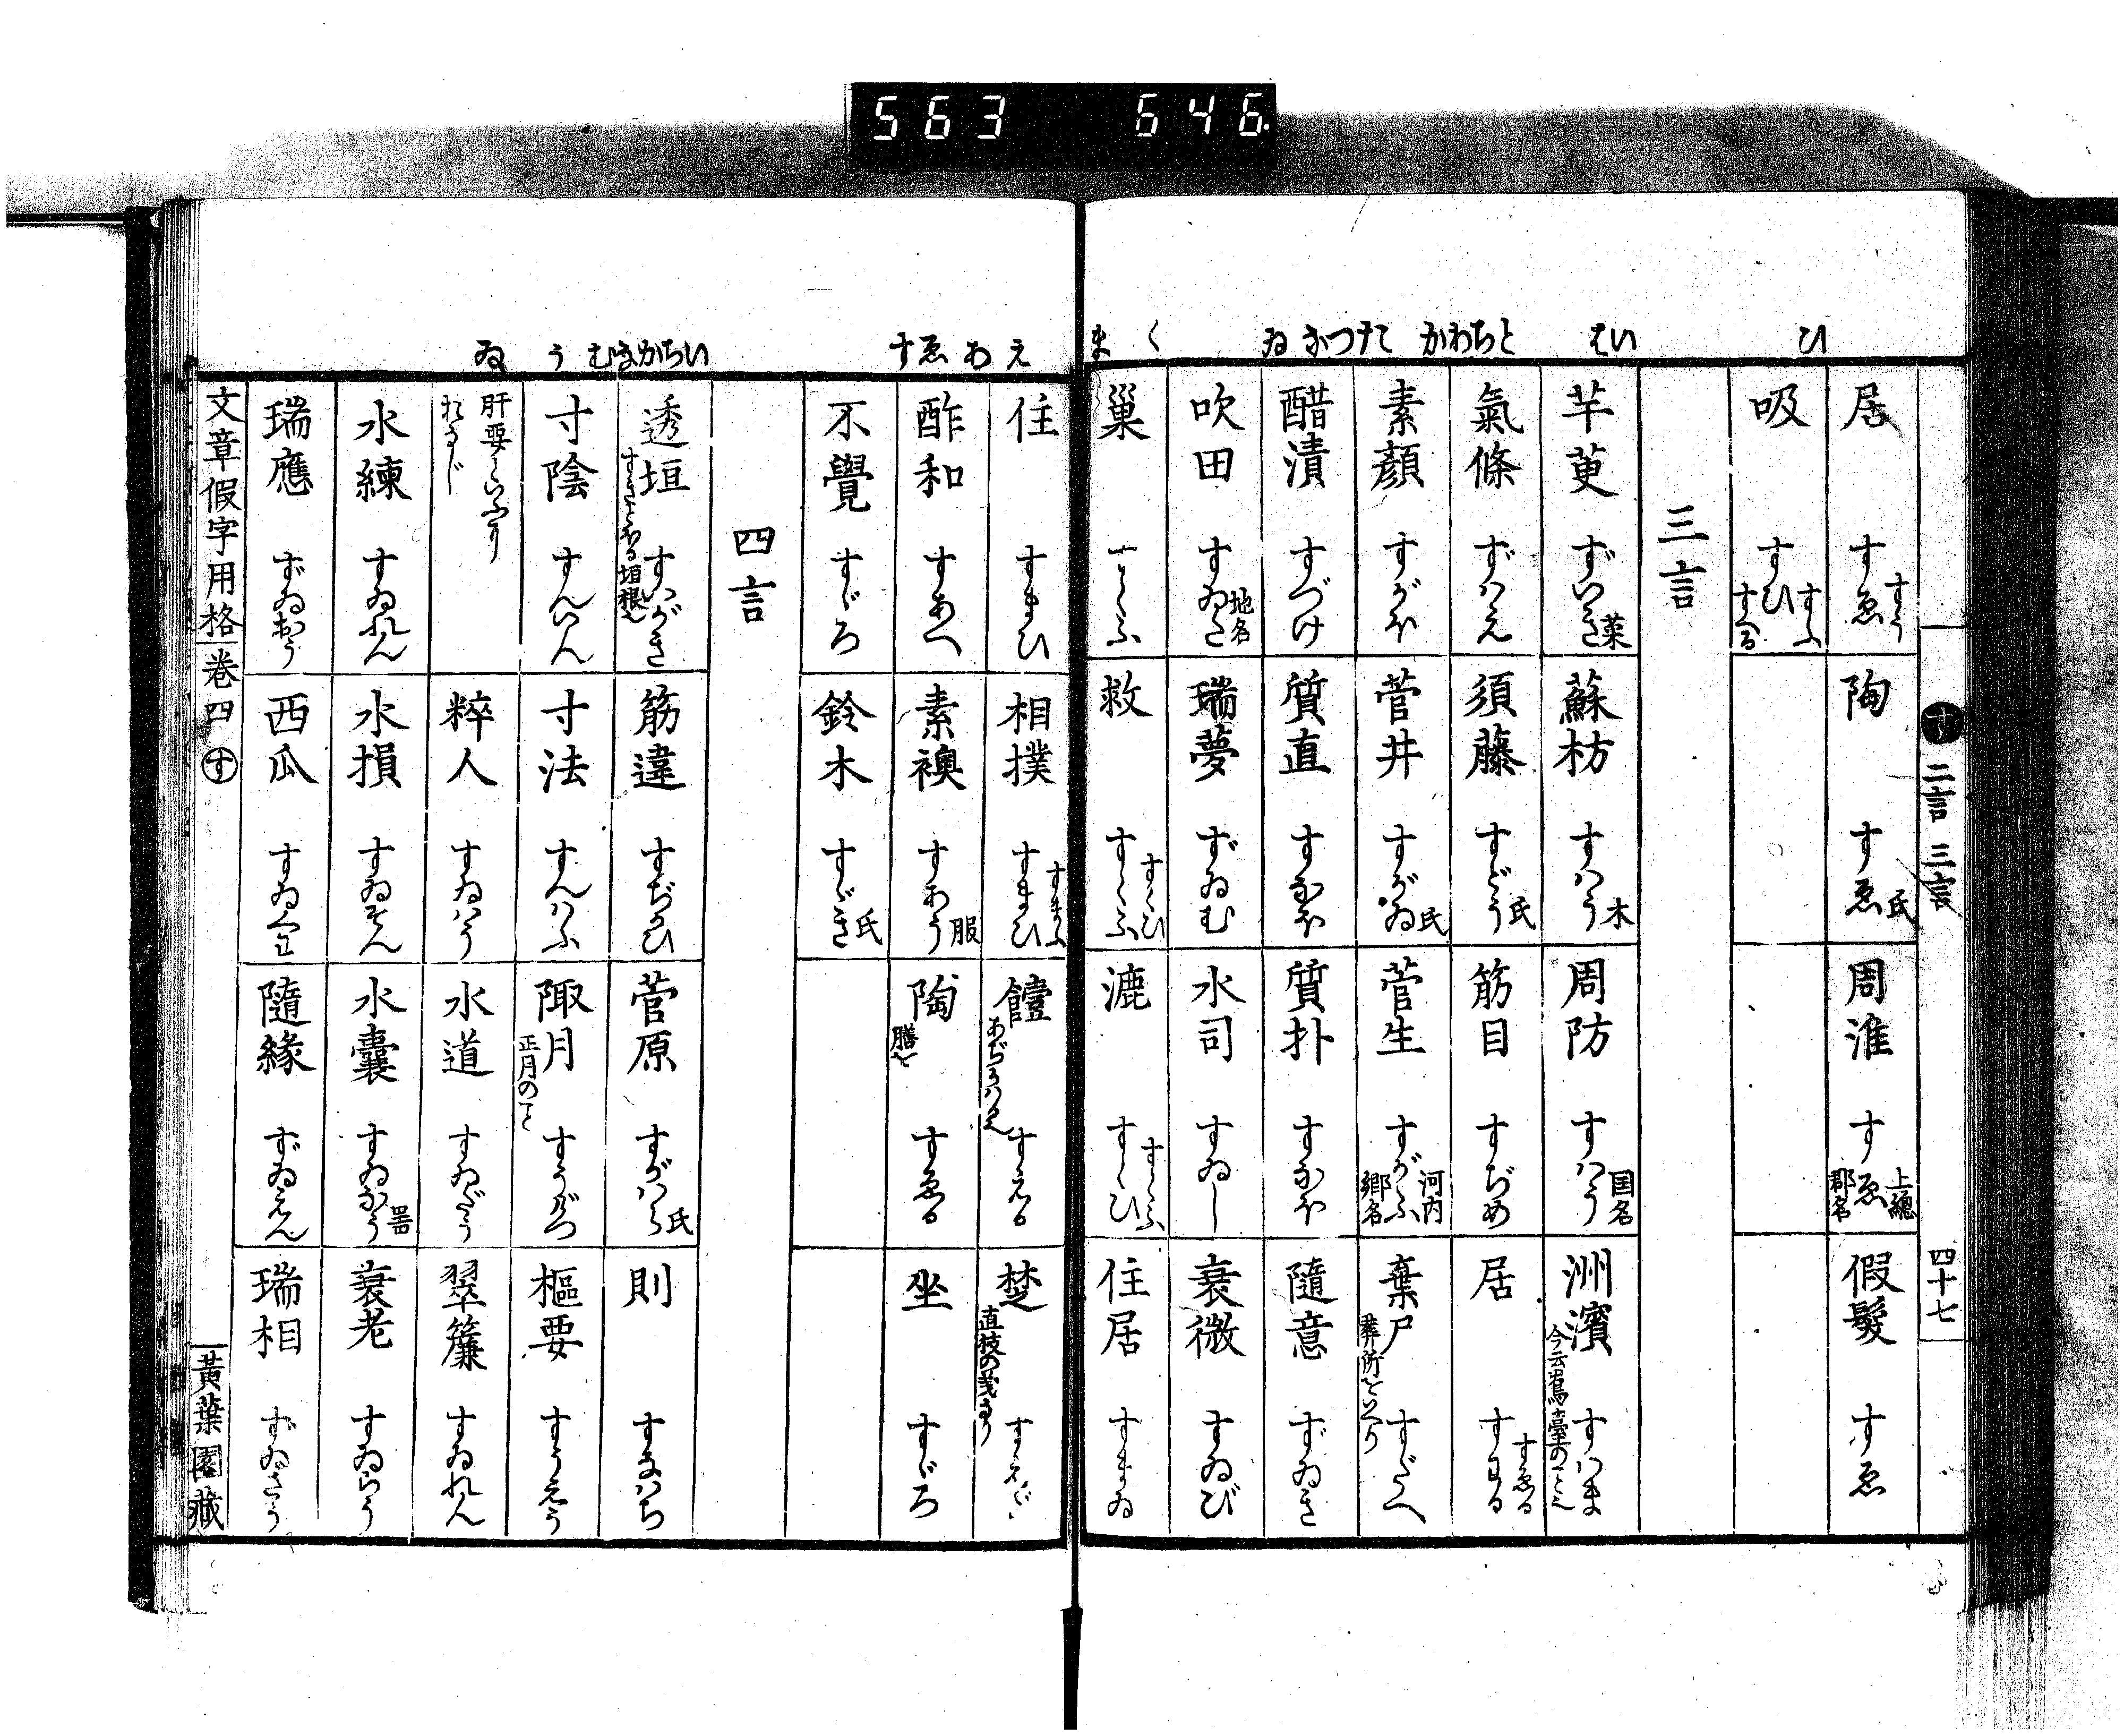 563 646
ひ
いは
とちわか
てすつなゐ
くま
す 二言 三言
四十七
居 すゑ すう
陶 すゑ 氏
周淮 すゑ 上總郡名
假髮 すゑ
吸 すひ すふ すへる
三言
芋茰 ずいき 菜
蘇枋 すはう 木
周防 すはう 国名
洲濱 今云嶋臺のこと也 すはま
氣條 ずはえ
須藤 すどう 氏
筋目 すぢめ
居 すわる すゑる
素顏 すがほ
菅井 すがゐ 氏
菅生 すがふ 河内郷名
棄戸 葬所をいへり すだへ
醋漬 すづけ
質直 すなほ
質朴 すなほ
隨意 ずゐき
吹田 すゐた 地名
瑞夢 ずゐむ
水司 すゐし
衰微 すゐび
巢 すくふ
救 すくふ すくひ
漉 すくひ すくふ
住居 すまゐ
えわゑす
いちかはまむうゐ
住 すまひ
相撲 すまひ すまふ
饐 あぢかはる すえる
楚 直枝の義なり すえだ
酢和 すあへ
素襖 すあう 服
陶 膳を すゑる
坐 すゞろ
不覺 すゞろ
鈴木 すゞき 氏
四言
透垣 すきとほる垣根也 すいがき
筋違 すぢかひ
菅原 すがはら 氏
則 すなはち
寸陰 すんいん
寸法 すんはふ
陬月 正月のこと すうげつ
樞要 すうえう
肝要といふに
おなじ
粹人 すゐはう
水道 すゐだう
翠簾 すゐれん
水練 すゐれん
水損 すゐそん
水嚢 すゐなう 器
衰老 すゐらう
瑞應 ずゐおう
西瓜 すゐくわ
隨緣 ずゐえん
瑞相 ずゐさう
文章假字用格 卷四 す
黃葉園藏